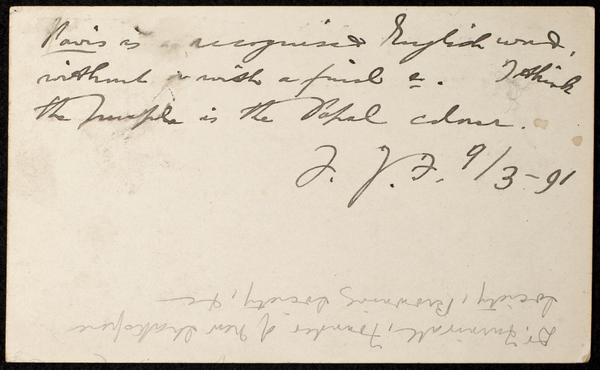 Pavis is a recognised English word,
without or with a final e. I think
the purple is the Papal colour.
F. J. F. 9/3-91
Dr. Furnivall, Founder of New Shakspere
Society, Browning Society, &c